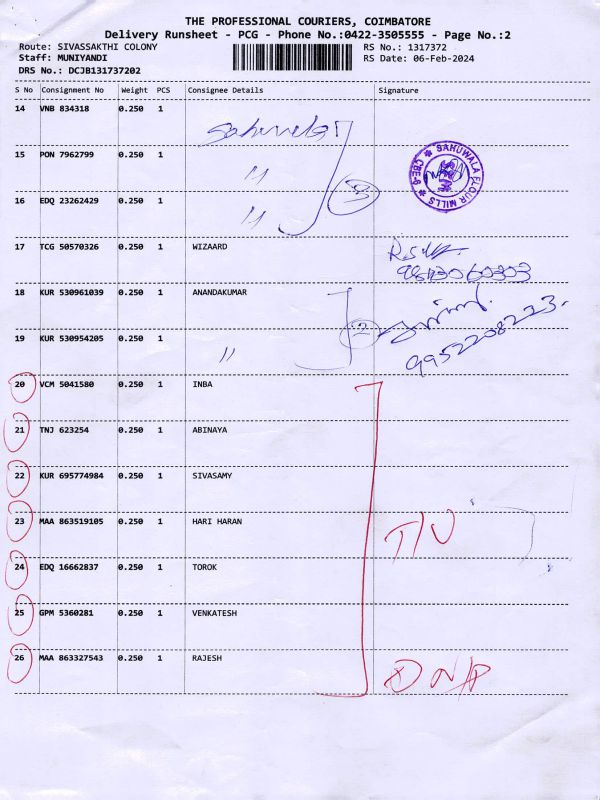 THE PROFESSIONAL COURIERS, COIMBATORE
Delivery Runsheet - PCG - Phone No.:0422-3505555 - Page No.:2
Route: SIVASSAKTHI COLONY RS No.: 1317372
Staff: MUNIYANDI RS Date: 06-Feb-2024
DRS No.: DCJB131737202
S No Consignment No Weight PCS Consignee Details Signature
14 VNB 834318 0.250 1
15 PON 7962799 0.250 1 "
SAHUWALA FLOUR MILLS * CBE-6 *
16 EDQ 23262429 0.250 1 " 3
17 TCG 50570326 0.250 1 WIZAARD
18 KUR 530961039 0.250 1 ANANDAKUMAR
19 KUR 530954205 0.250 1 " 2 9952208223
20 VCM 5041580 0.250 1 INBA
21 TNJ 623254 0.250 1 ABINAYA
22 KUR 695774984 0.250 1 SIVASAMY
23 MAA 863519105 0.250 1 HARI HARAN
24 EDQ 16662837 0.250 1 TOROK
25 GPM 5360281 0.250 1 VENKATESH
26 MAA 863327543 0.250 1 RAJESH